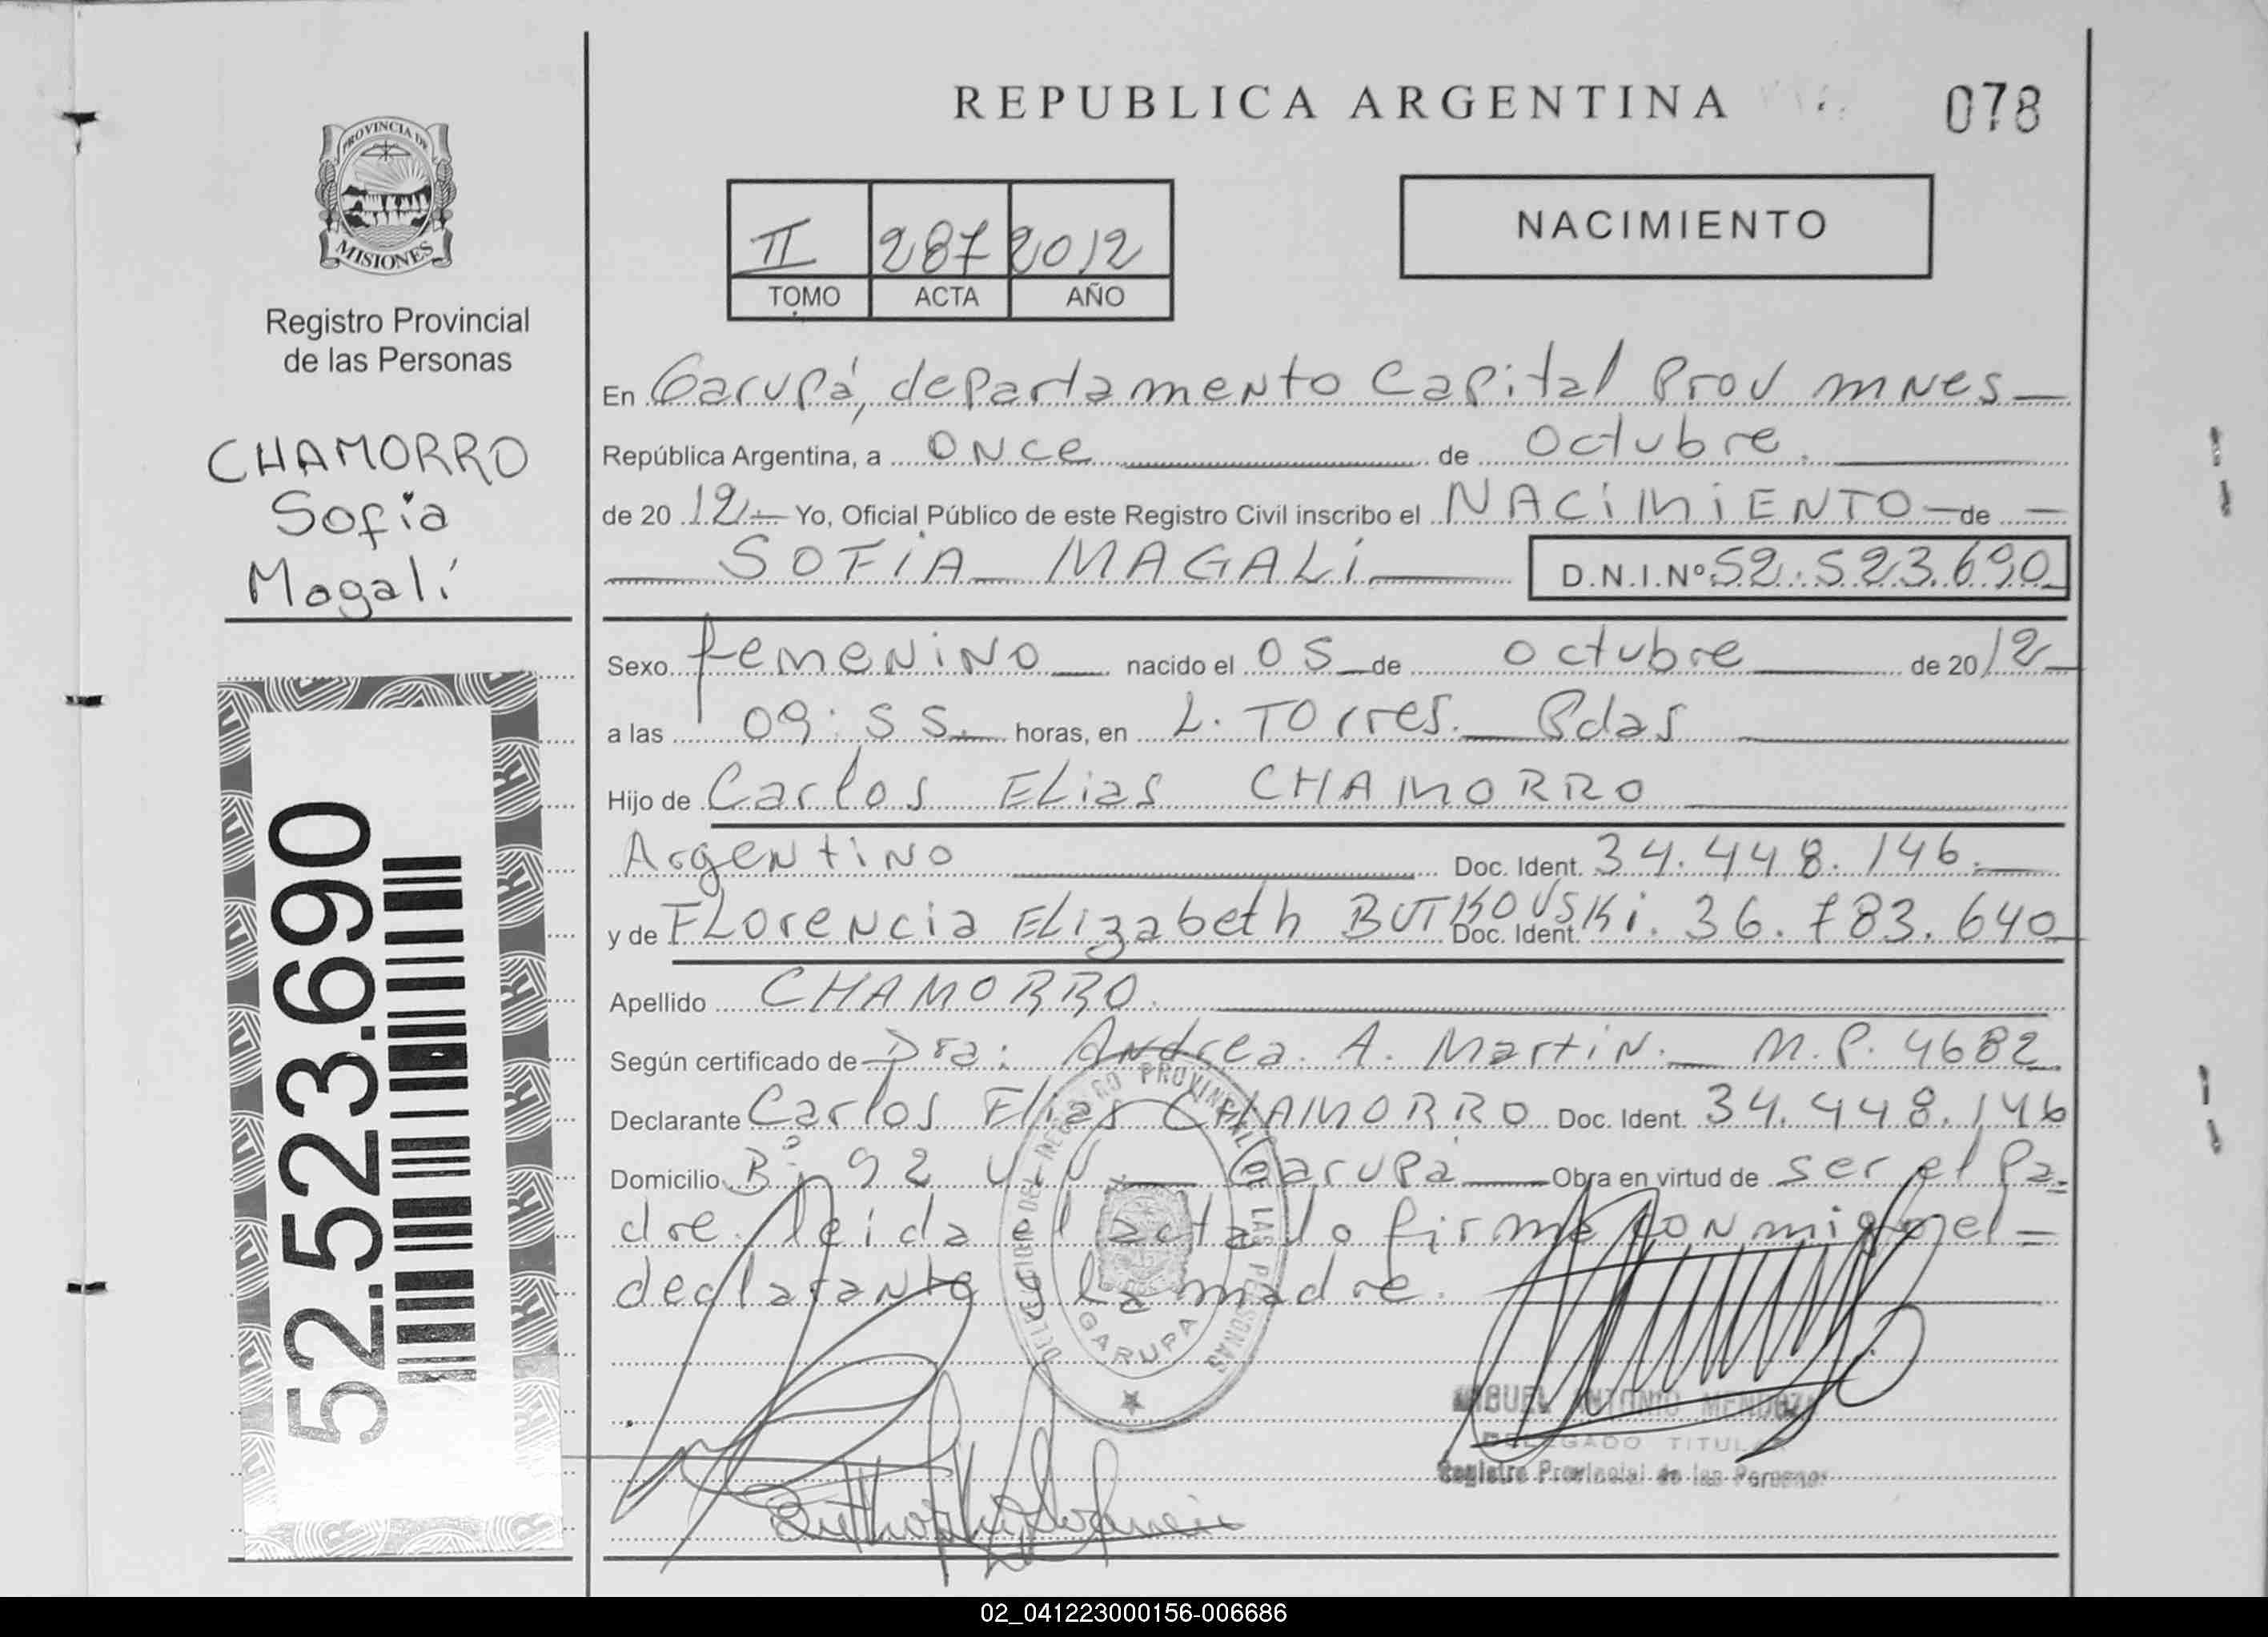 REPUBLICA ARGENTINA
078
PROVINCIA DE
MISIONES
Registro Provincial
de las Personas
CHAMORRO
Sofia
Magalí
52.523.690
II 287 2012
TOMO ACTA AÑO
NACIMIENTO
En Garupá, departamento Capital Prov mNes
República Argentina, a ONce de Octubre.
de 20 12 Yo, Oficial Público de este Registro Civil inscribo el NACiMiENTO de
SOFiA MAGALi D.N.I.Nº 52.523.690
Sexo femeNiNO nacido el 05 de octubre de 20 12
a las 09:55 horas, en L. Torres. Pdas
Hijo de Carlos ELias CHAMORRO
ArgeNtiNo Doc. Ident. 34.448.146.
y de FLoreNcia ELizabeth BUTKOVSKi. Doc. Ident. 36.783.640
Apellido CHAMORRO.
Según certificado de Dra: Andrea. A. MartiN. M.P. 4682
Declarante Carlos Elias CHAMORRO Doc. Ident. 34.448.146
Domicilio Bº 92 Garupa Obra en virtud de ser el Pa=
dre. leida el acta lo firma coNmigo el=
declaraNte y la madre.
DELEGACION DEL REGISTRO PROVINCIAL DE LAS PERSONAS
GARUPA
MIGUEL ANTONIO MENDOZA
DELEGADO TITULAR
Registro Provincial de las Personas
02_041223000156-006686